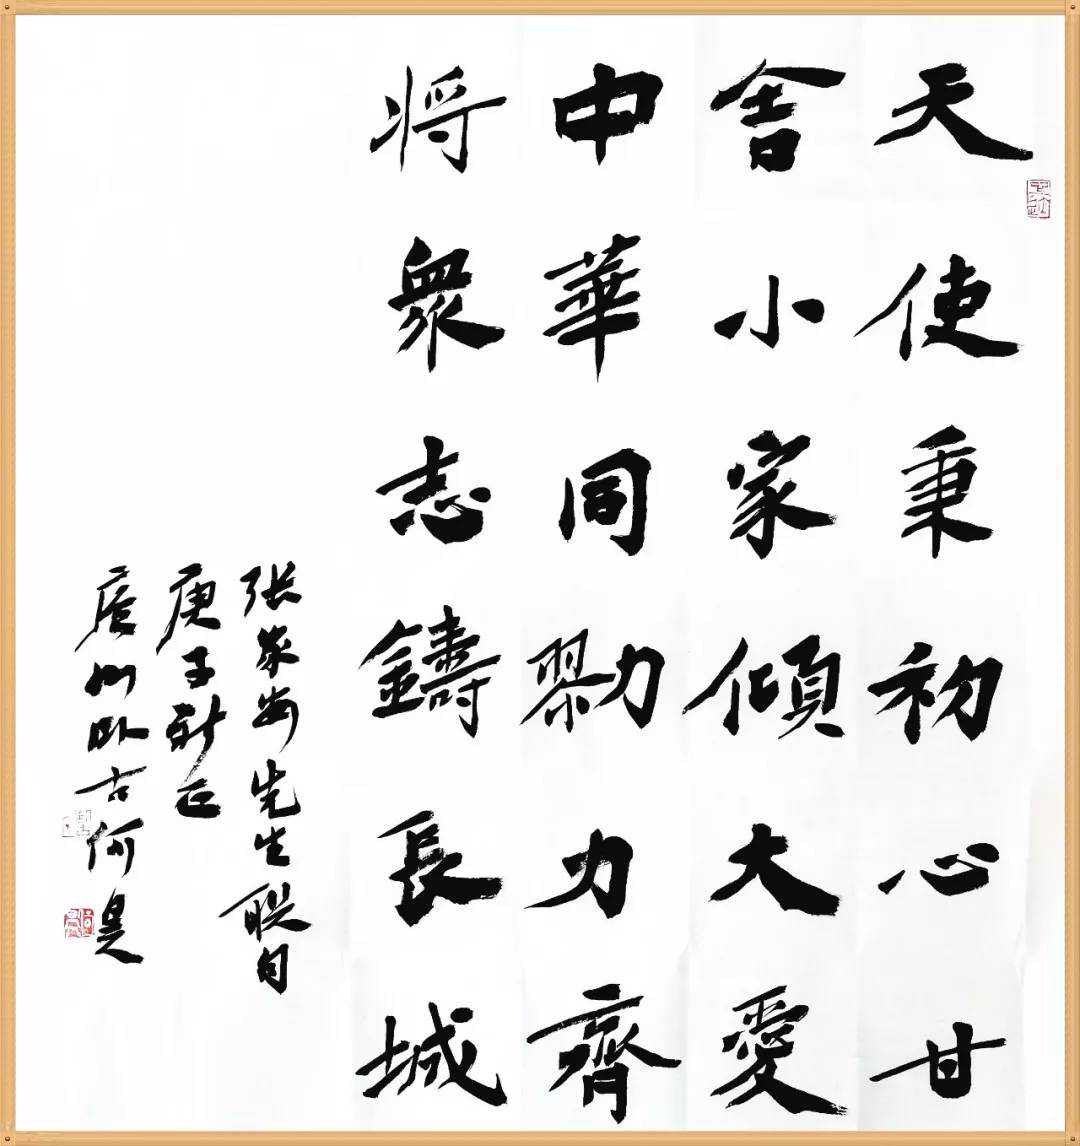 天使秉初心甘
舍小家傾大愛
中華同勠力齊
将衆志鑄長城
张家安先生联句
庚子新正
州卧古何